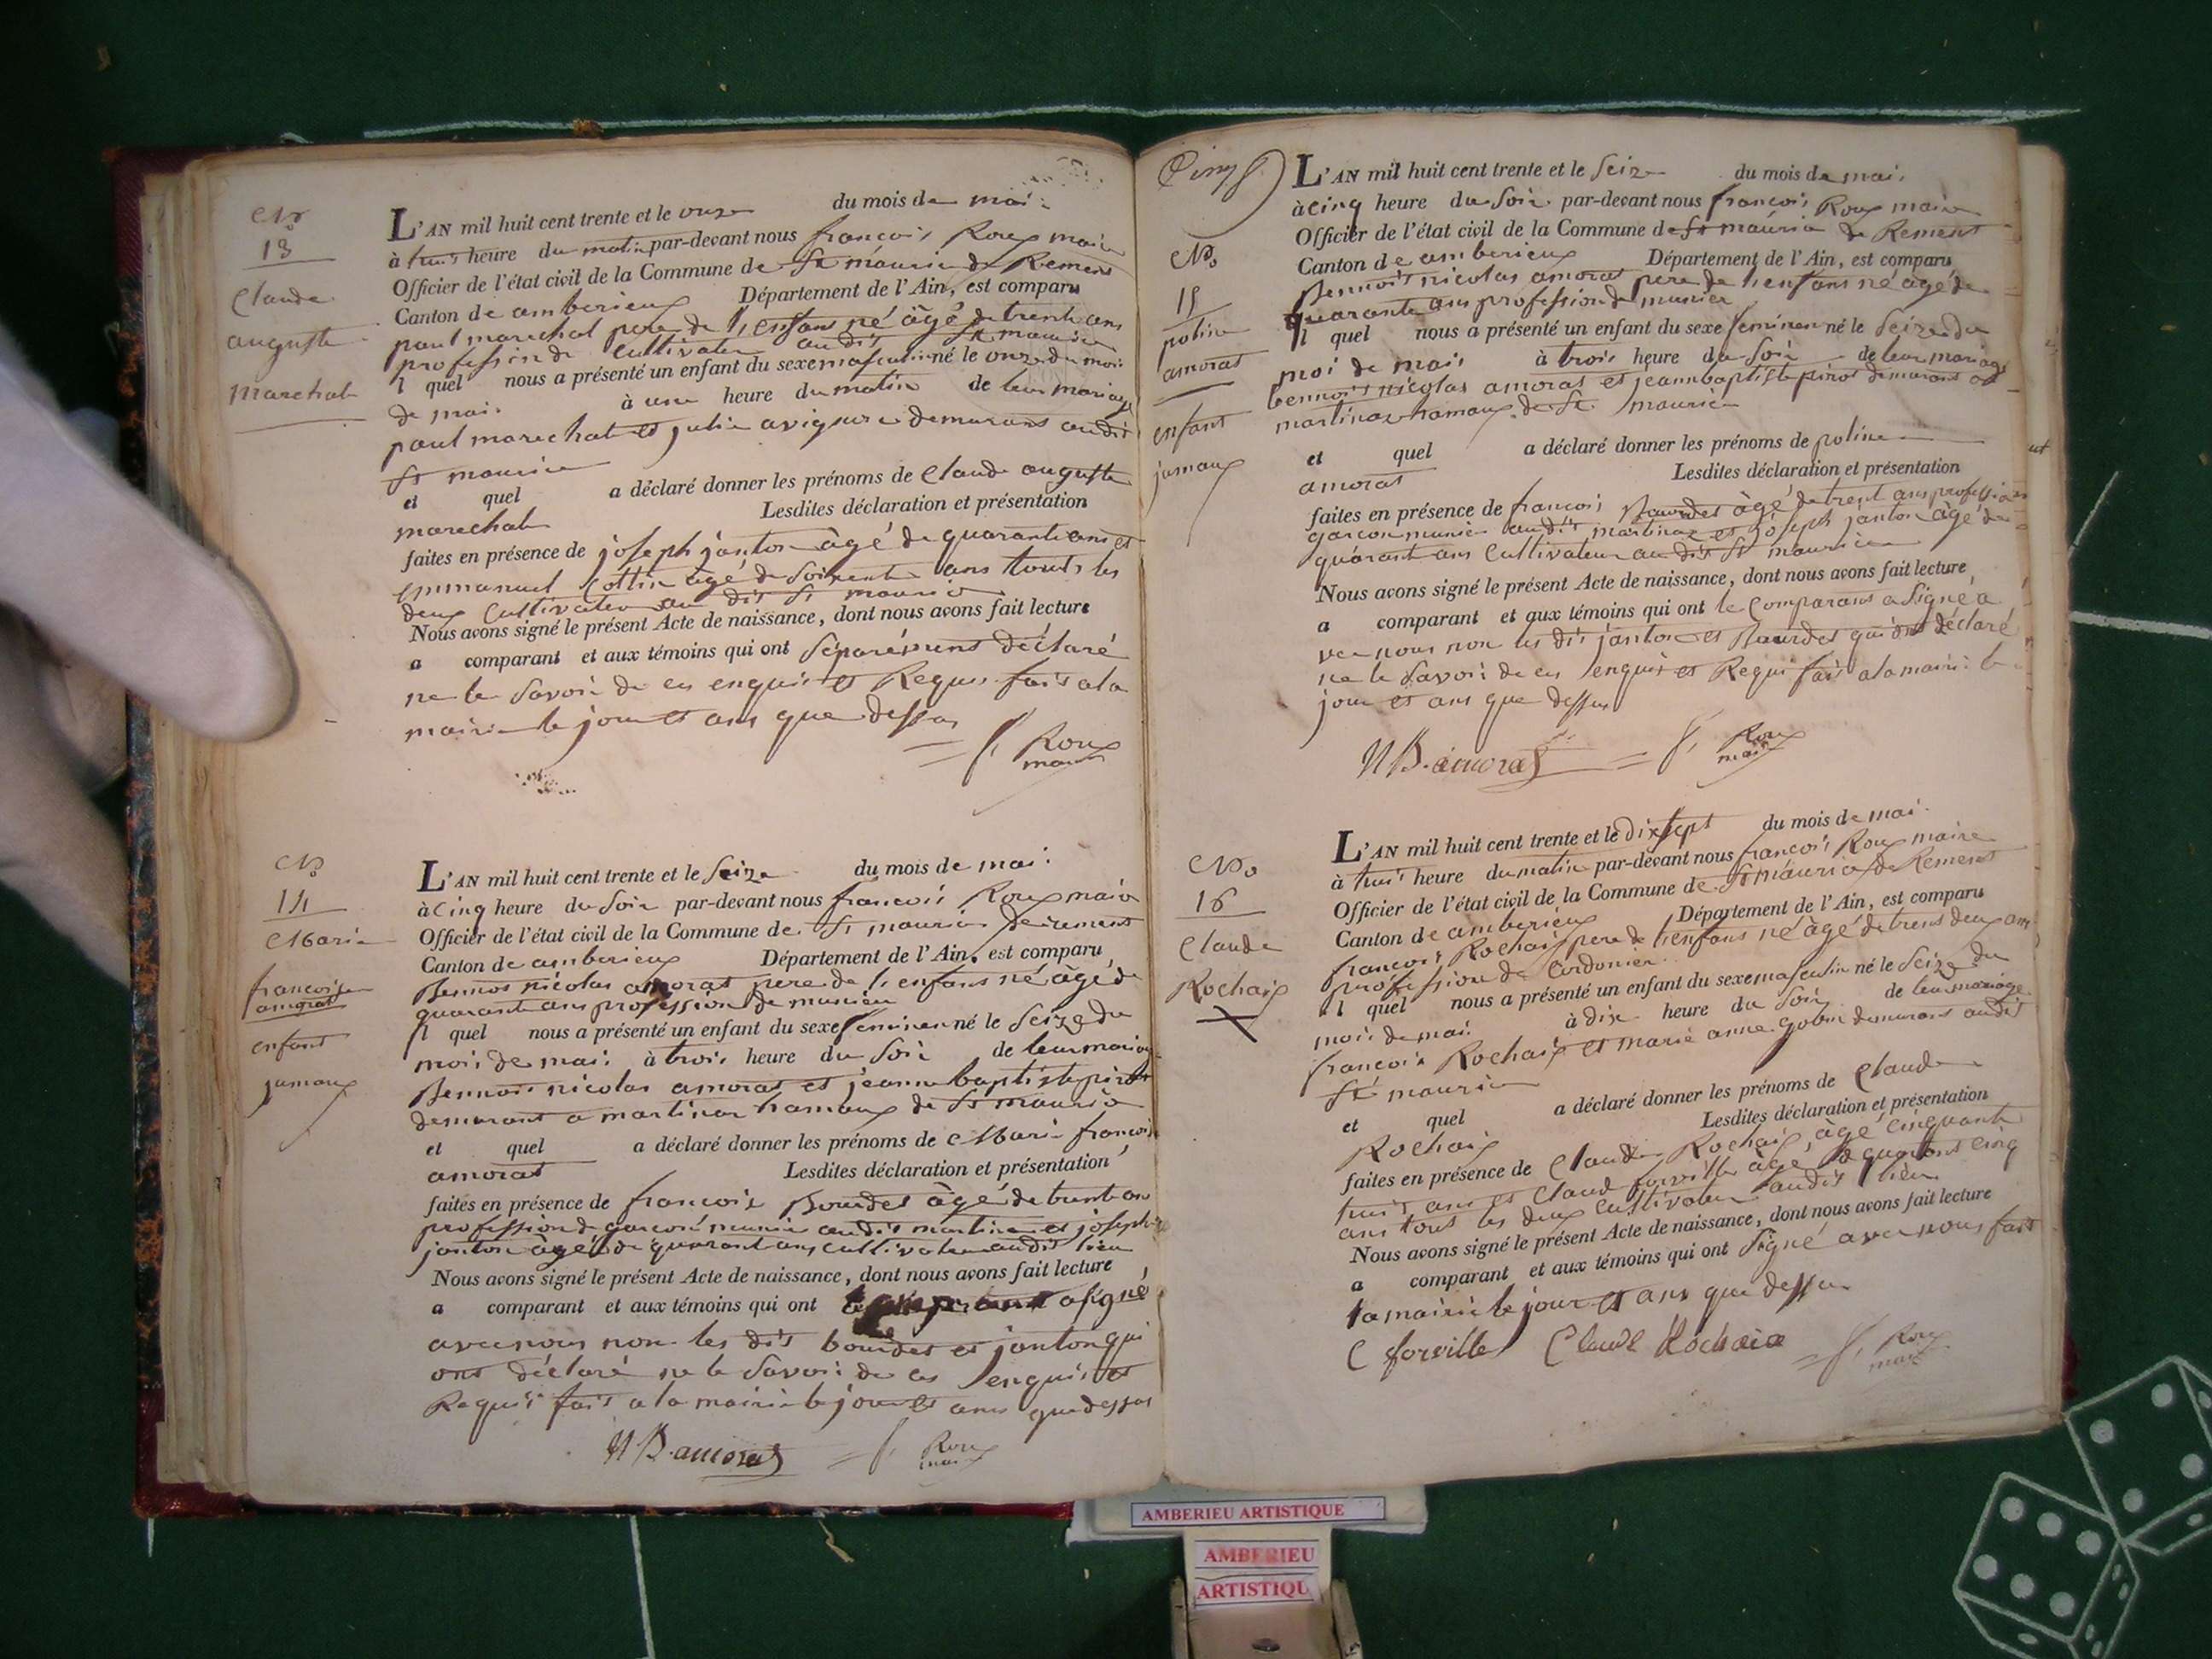 No
13
Claude
auguste
marechal
L'AN mil huit cent trente et le onze du mois de mai
à trois heure du matin par-devant nous francois Roux maire
Officier de l'état civil de la Commune de St maurice de Remens
Canton de amberieux Département de l'Ain, est comparu
paul marechal pere de l'enfans né âgé de trente ans
profession de Cultivateur audit St maurice
l quel nous a présenté un enfant du sexe masculin né le onze du mois
de mai à une heure du matin de leur mariage
paul marechal et julie demurans audit
St maurice
et quel a déclaré donner les prénoms de Claude auguste
marechal Lesdites déclaration et présentation
faites en présence de joseph janton âgé de quarante ans et
emmanuel Cottin âgé de soixente ans touts les
deux Cultivateur au dit St maurice
Nous avons signé le présent Acte de naissance, dont nous avons fait lecture
a comparant et aux témoins qui ont séparément déclaré
ne le savoir de ces enquis et Requis fait a la
mairie le jour et ans que dessus
f. Roux
maire
No
14
Marie
francoise
amorat
enfant
jumaux
L'AN mil huit cent trente et le seize du mois de mai
à cinq heure du soir par-devant nous francois Roux maire
Officier de l'état civil de la Commune de St maurice de remens
Canton de amberieux Département de l'Ain, est comparu
Bennoit nicolas amorat pere de l'enfans né âgé de
quarante ans profession de munier
Il quel nous a présenté un enfant du sexe feminen né le seize du
mois de mai à trois heure du soir de leur mariage
Bennoit nicolas amorat et jeanne baptiste pirot
demurant a martinaz hamaux de St maurice
et quel a déclaré donner les prénoms de Marie francoise
amorat Lesdites déclaration et présentation
faites en présence de francois Bourdet âgé de trente ans
profession de garcon munier audit martinaz et joseph
janton âgé de quarant ans cultivateur audit lieu
Nous avons signé le présent Acte de naissance, dont nous avons fait lecture
a comparant et aux témoins qui ont le comparant a signé
avec nous non les dit bourdet et janton qui
ont déclaré ne le savoir de ces enquis et
Requis fait a la mairie le jour et ans que dessus
N B. amorat f. Roux
maire
L'AN mil huit cent trente et le seize du mois de mai
à cinq heure du soir par-devant nous francois Roux maire
Officier de l'état civil de la Commune de St maurice de Remens
No
15
poline
amorat
enfant
jumaux
Canton de amberieux Département de l'Ain, est comparu
Bennoit nicolas amorat pere de l'enfans né âgé de
quarante ans profession de munier
Il quel nous a présenté un enfant du sexe feminen né le seize du
moi de mai à trois heure du soir de leur mariage
bennoit nicolas amorat et jeanne baptiste pirot demurant a
martinaz hamaux de St maurice
et quel a déclaré donner les prénoms de poline
amorat Lesdites déclaration et présentation
faites en présence de francois Bourdet âgé de trent ans profession
garcon munier audit martinaz et joseph janton âgé de
quarant ans Cultivateur au dit St maurice
Nous avons signé le présent Acte de naissance, dont nous avons fait lecture
a comparant et aux témoins qui ont le comparant a signé a
vec nous non les dit janton et Bourdet qui ont déclaré
ne le savoir de ces enquis et Requis fait a la mairie le
jour et ans que dessus
N B. amorat f. Roux
maire
No
16
Claude
Rochaix
L'AN mil huit cent trente et le dix sept du mois de mai
à trois heure du matin par-devant nous francois Roux maire
Officier de l'état civil de la Commune de St maurice de Remens
Canton de amberieux Département de l'Ain, est comparu
francois Rochaix pere de l'enfans né âgé de trent deux ans
profession de Cordonier
l quel nous a présenté un enfant du sexe masculin né le seize du
mois de mai à dix heure du soir de leur mariage
francois Rochaix et marie anne demurans audit
St maurice
et quel a déclaré donner les prénoms de Claude
Rochaix Lesdites déclaration et présentation
faites en présence de Claude Rochaix, âgé cinquante
trois ans et Claud forville âgé de quarant cinq
ans tout les deux cultivateur audit lieu
Nous avons signé le présent Acte de naissance, dont nous avons fait lecture
a comparant et aux témoins qui ont signé avec nous fait
la mairie le jour et ans que dessus
C forville Claude Rochaix f. Roux
maire
AMBERIEU ARTISTIQUE
AMBERIEU
ARTISTIQU